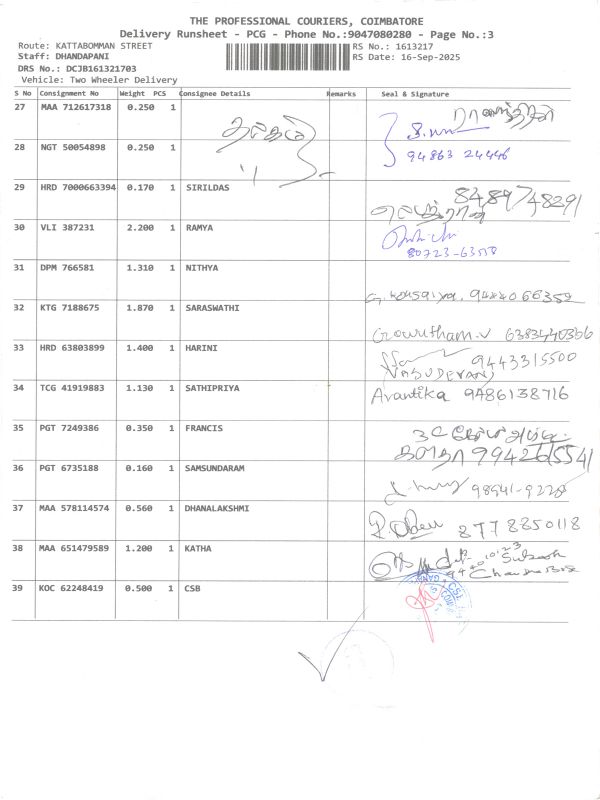 THE PROFESSIONAL COURIERS, COIMBATORE
Delivery Runsheet - PCG - Phone No.:9047080280 - Page No.:3
Route: KATTABOMMAN STREET RS No.: 1613217
Staff: DHANDAPANI RS Date: 16-Sep-2025
DRS No.: DCJB161321703
Vehicle: Two Wheeler Delivery
S No Consignment No Weight PCS Consignee Details Remarks Seal & Signature
27 MAA 712617318 0.250 1
28 NGT 50054898 0.250 1 94863 24446
29 HRD 7000663394 0.170 1 SIRILDAS 8489748291
30 VLI 387231 2.200 1 RAMYA
80723-63518
31 DPM 766581 1.310 1 NITHYA 9444066359
32 KTG 7188675 1.870 1 SARASWATHI Gowtham.v 6383440366
33 HRD 63803899 1.400 1 HARINI 9443315500
VASUDEVAN
34 TCG 41919883 1.130 1 SATHIPRIYA Avantika 9486138716
35 PGT 7249386 0.350 1 FRANCIS
36 PGT 6735188 0.160 1 SAMSUNDARAM 98941-9228
37 MAA 578114574 0.560 1 DHANALAKSHMI 8778850118
38 MAA 651479589 1.200 1 KATHA
39 KOC 62248419 0.500 1 CSB